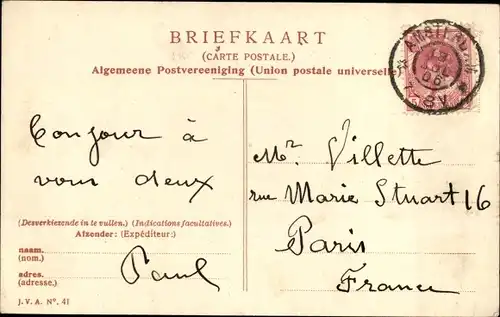 BRIEFKAART
(CARTE POSTALE.)
Algemeene Postvereeniging (Union postale universelle)
AMSTERDAM
7-8V
Bonjour à
vous deux
Mr. Villette
rue Marie Stuart 16
Paris
France
(Desverkiezende in te vullen.) (Indications facultatives.)
Afzender: (Expéditeur:)
naam.
(nom.)
adres.
(adresse.)
Paul
J. V. A. No. 41